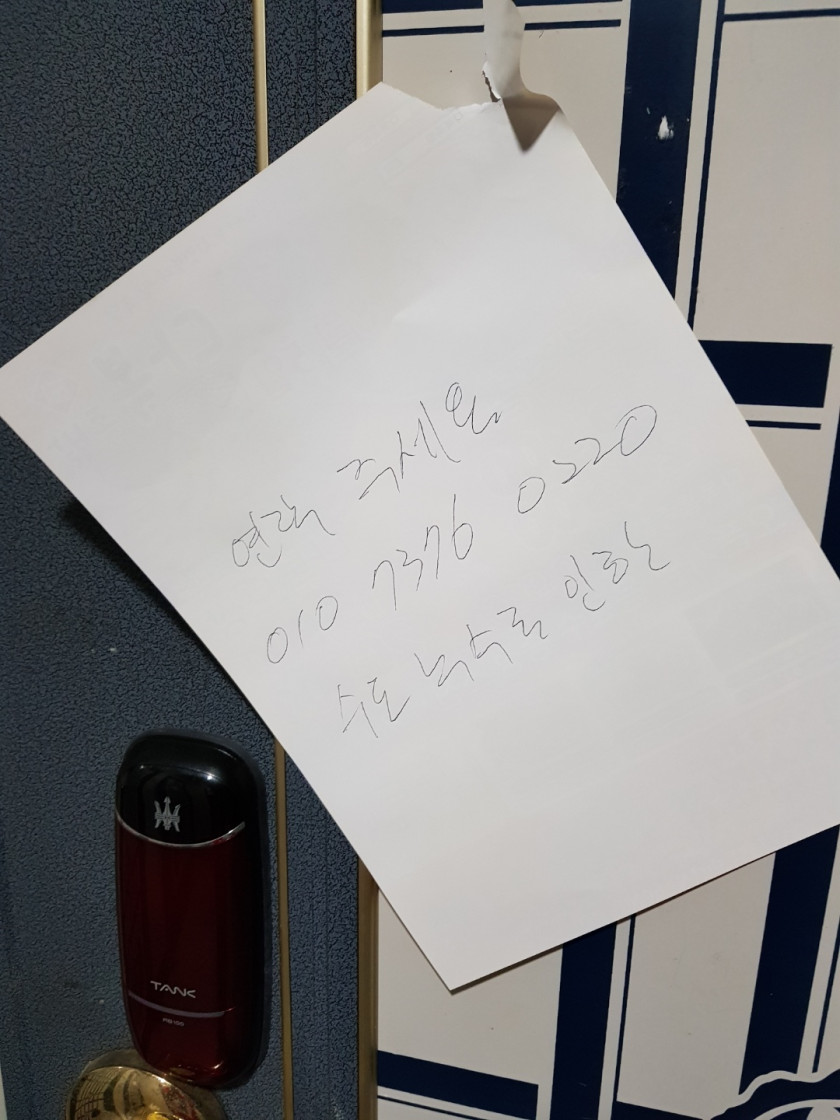 연락 주세요
010 7376 0220
수도 누수로 인한
TANK